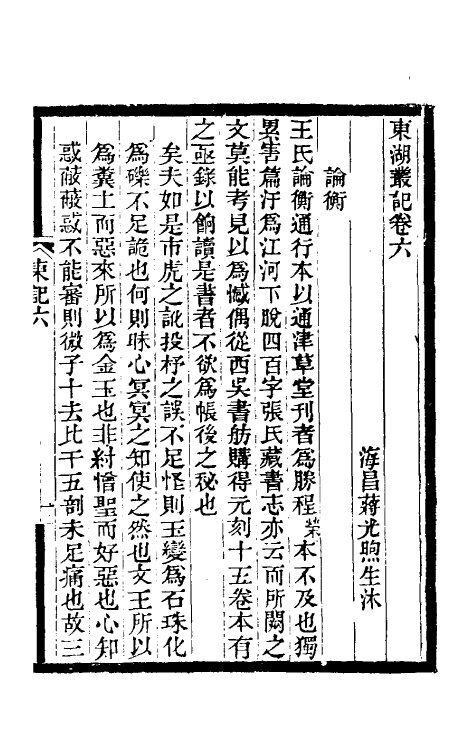 東湖叢記卷六
海昌蔣光煦生沐
論衡
王氏論衡通行本以通津草堂刊者為勝程榮本不及也獨
累害篇汙為江河下脫四百字張氏藏書志亦云而所闕之
文莫能考見以為憾偶從西吳書舫購得元刻十五卷本有
之亟錄以餉讀是書者不欲為帳後之秘也
矣夫如是市虎之訛投杼之誤不足怪則玉變為石珠化
為礫不足詭也何則昧心冥冥之知使之然也文王所以
為糞土而惡來所以為金玉也非紂憎聖而好惡也心知
惑蔽蔽惑不能審則微子十去比干五剖未足痛也故三
東記六
一